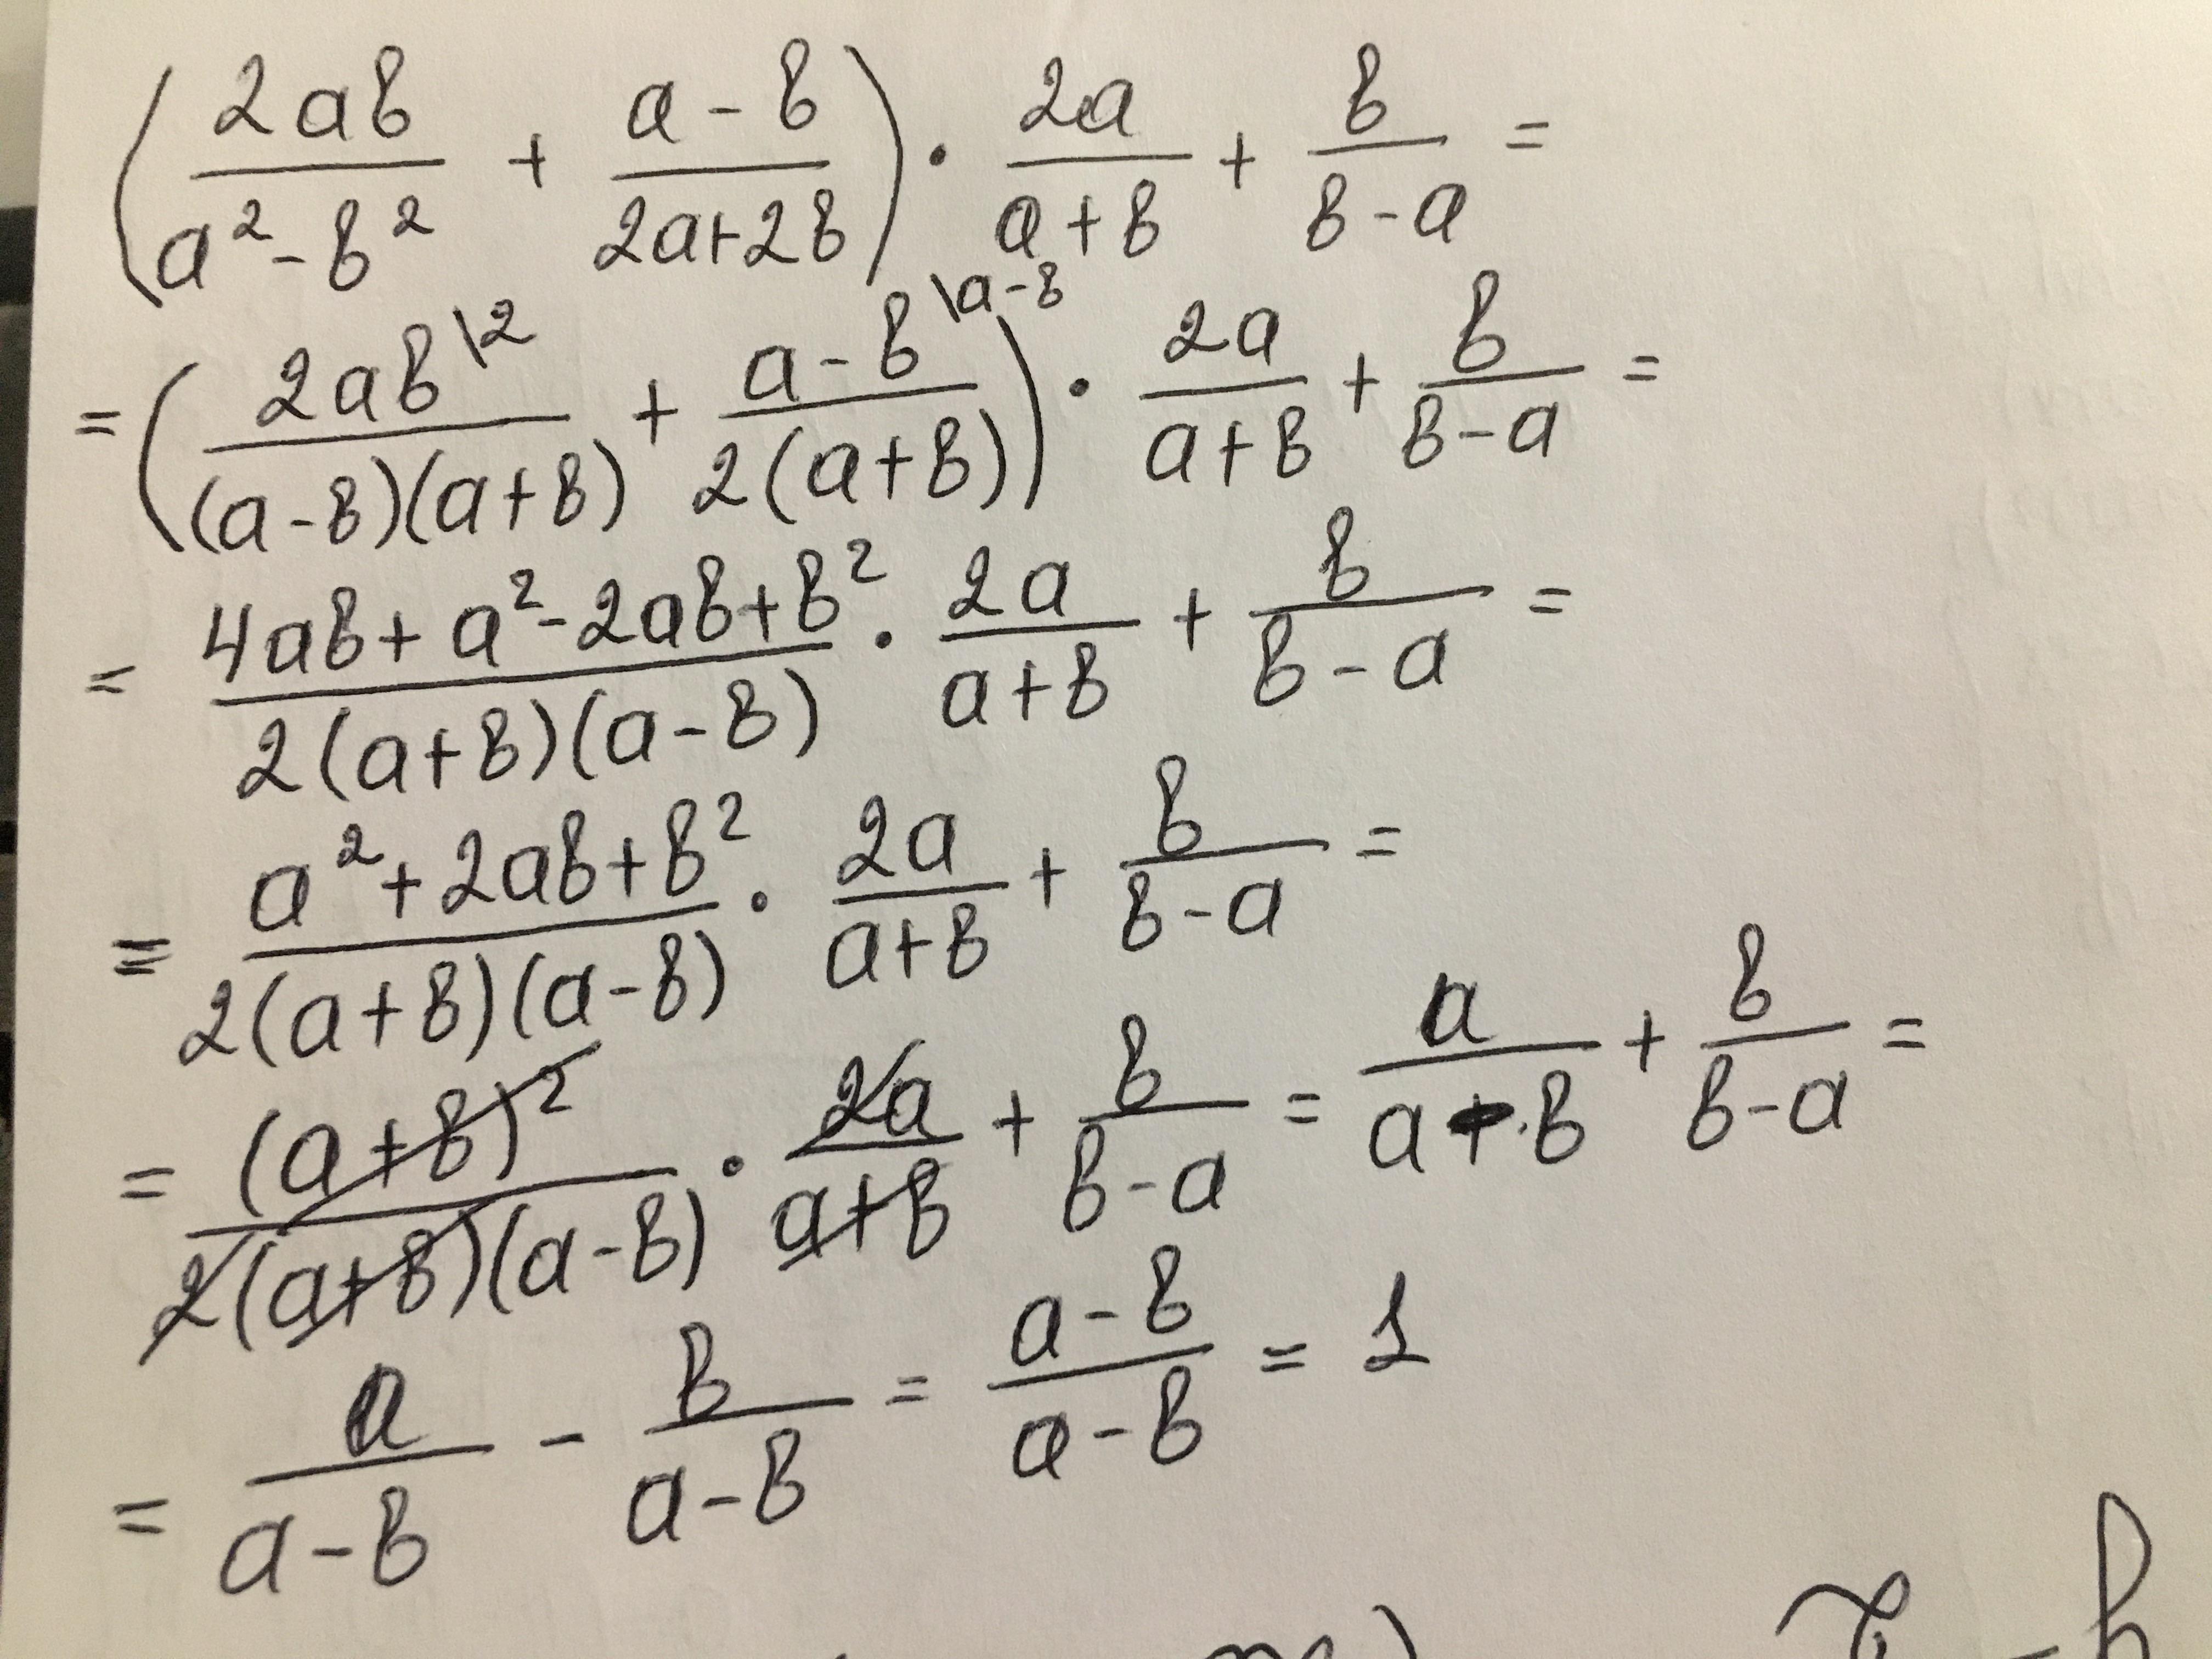 (2ab/(a²-b²) + (a-b)/(2a+2b)) · 2a/(a+b) + b/(b-a) =
= (2ab\2/((a-b)(a+b)) + (a-b)\a-b/(2(a+b))) · 2a/(a+b) + b/(b-a) =
= (4ab+a²-2ab+b²)/(2(a+b)(a-b)) · 2a/(a+b) + b/(b-a) =
= (a²+2ab+b²)/(2(a+b)(a-b)) · 2a/(a+b) + b/(b-a) =
= (a+b)²/(2(a+b)(a-b)) · 2a/(a+b) + b/(b-a) = a/(a-b) + b/(b-a) =
= a/(a-b) - b/(a-b) = (a-b)/(a-b) = 1